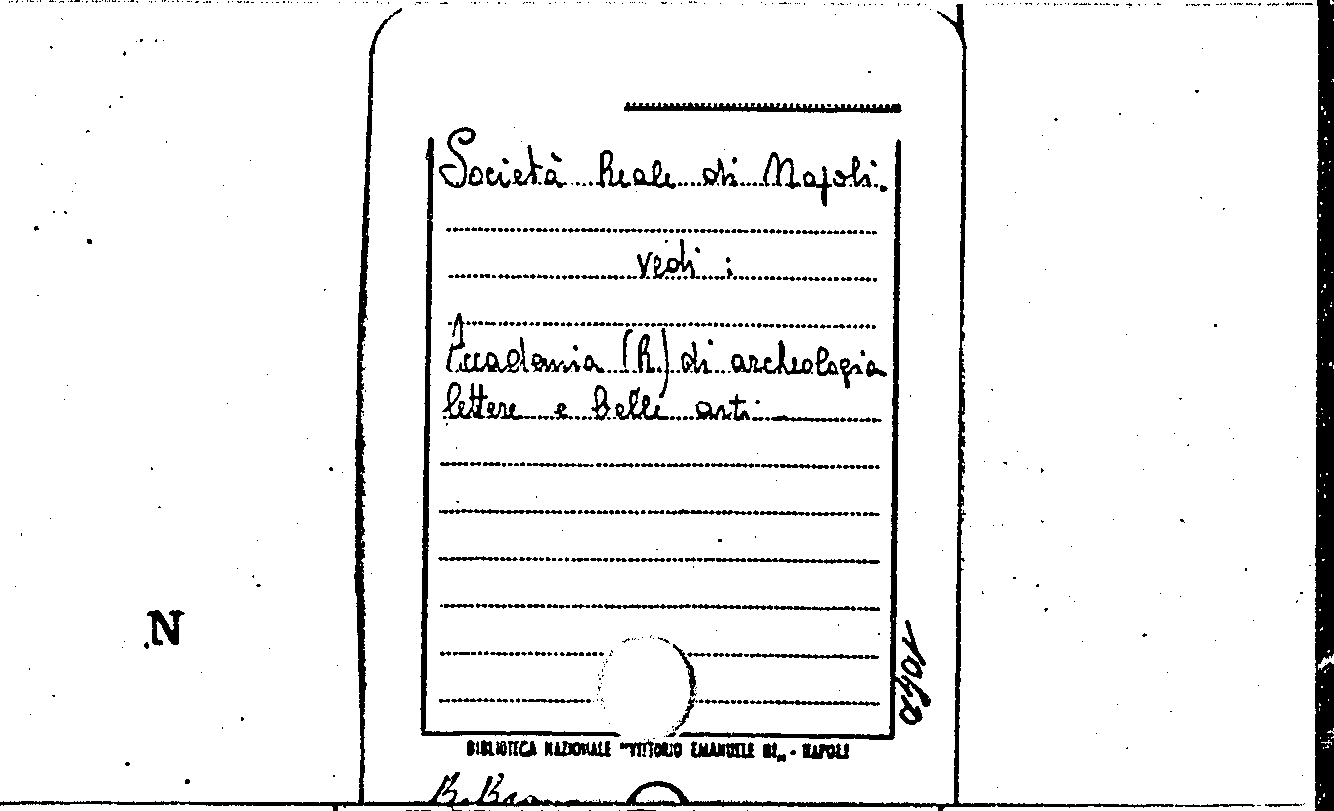 Società Reale di Napoli.
vedi :
Accademia (R.) di archeologia
lettere e belle arti
N
BIBLIOTECA NAZIONALE "VITTORIO EMANUELE III„ - NAPOLI